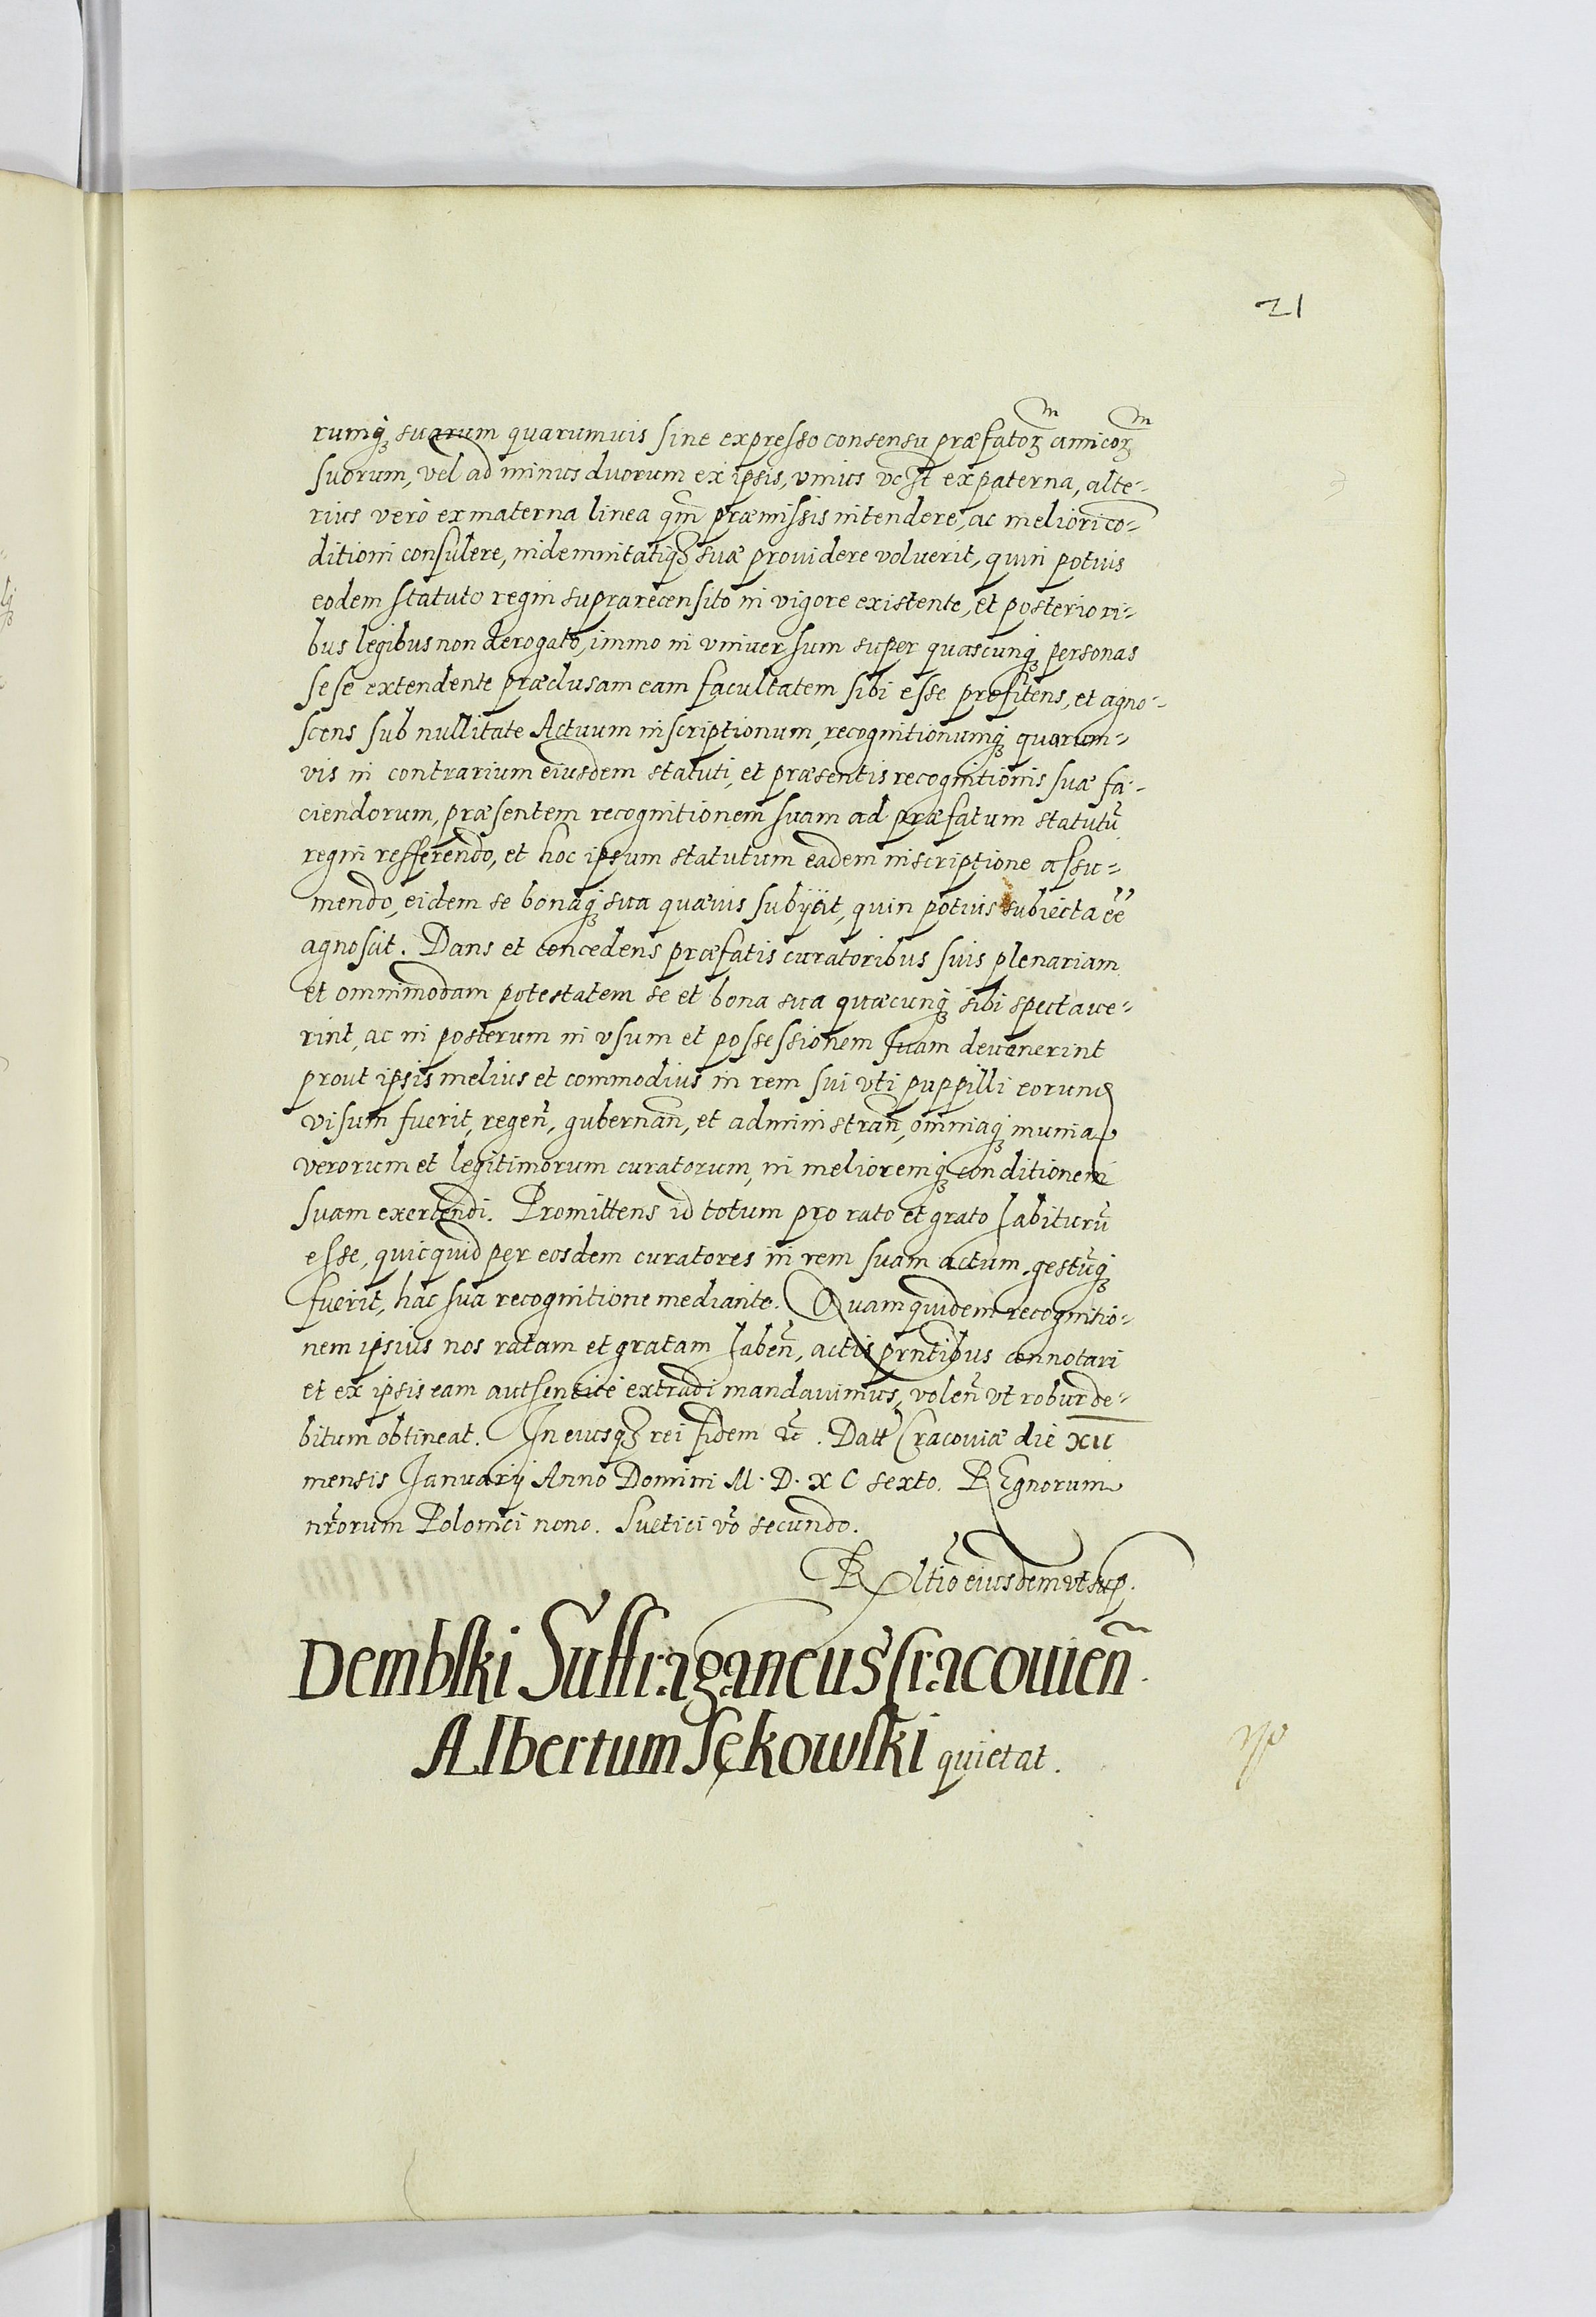 21
rumq́ꝫ suarum quarumuis sine expresso consensu præfatoꝝ amicoꝝ
suorum, vel ad minus duorum ex ipsis, vnius vcꝫt ex paterna, alte-
rius verò ex materna linea qm̃ præmissis intendere, ac meliori co-
ditioni consulere, indemnitatiqꝫ suæ prouidere voluerit, quin potius
eodem statuto regni suprarecensito in vigore existente, et posteriori-
bus legibus non derogato, immo in vniuersum super quascunq́ꝫ personas
sese extendente præclusam eam facultatem sibi esse profitens, et agno-
scens sub nullitate Actuum inscriptionum, recognitionumq́ꝫ quarum-
vis in contrarium eiusdem statuti, et præsentis recognitionis suæ fa-
ciendorum, præsentem recognitionem suam ad præfatum statutũ
regni refferendo, et hoc ipsum statutum eadem inscriptione assu-
mendo, eidem se bonaq́ꝫ sua quæuis subijcit, quin potius subiecta ee
agnoscit. Dans et concedens præfatis curatoribus suis plenariam
et omnimodam potestatem se et bona sua quæcunq́ꝫ sibi spectaue-
rint, ac in posterum in vsum et possessionem suam deuenerint
prout ipsis melius et commodius in rem sui vti puppilli eorum
visum fuerit, regeñ, gubernañ, et administrañ, omniaq́ꝫ munia
verorum et legitimorum curatorum, in melioremq́ꝫ conditionem
suam exercendi. Promittens id totum pro rato et grato habiturũ
esse, quicquid per eosdem curatores in rem suam actum gestũq́ꝫ
fuerit, hac sua recognitione mediante. Quam quidem recognitio-
nem ipsius nos ratam et gratam habeñ, actis prñtibus connotari
et ex ipsis eam authentice extradi mandauimus, voleñ vt robur de-
bitum obtineat. In eiusqꝫ rei fidem &c. Datt Cracouiæ die xii
mensis Ianuarij Anno Domini M. D. XC sexto. REgnorum
nr̃orum Polonici nono. Suetici vo secundo.
Rltio eiusdem vt sup.
Dembski Suffraganeus Cracouieñ.
Albertum Sękowski quietat.